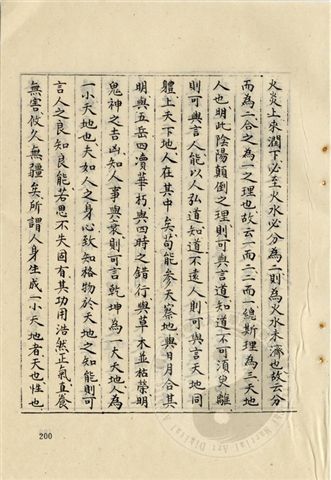 火炎上來潤下必至火水必分為二則為火水未濟也故云分
而為二合之為一之理也故云一而二二而一總斯理為三天地
人也明此陰陽顛倒之理則可與言道知道不可須臾離
則可與言人能以人弘道知道不遠人則可與言天地同
體上天下地人在其中矣苟能參天察地與日月合其
明與五岳四瀆華朽與四時之錯行與草木並枯榮明
鬼神之吉凶知人事興衰則可言乾坤為一大天地人為
一小天地也夫如人之身心致知格物於天地之知能則可
言人之良知良能若思不失固有其功用浩然正氣直養
無害攸久無疆矣所謂人身生成一小天地者天也性也
200